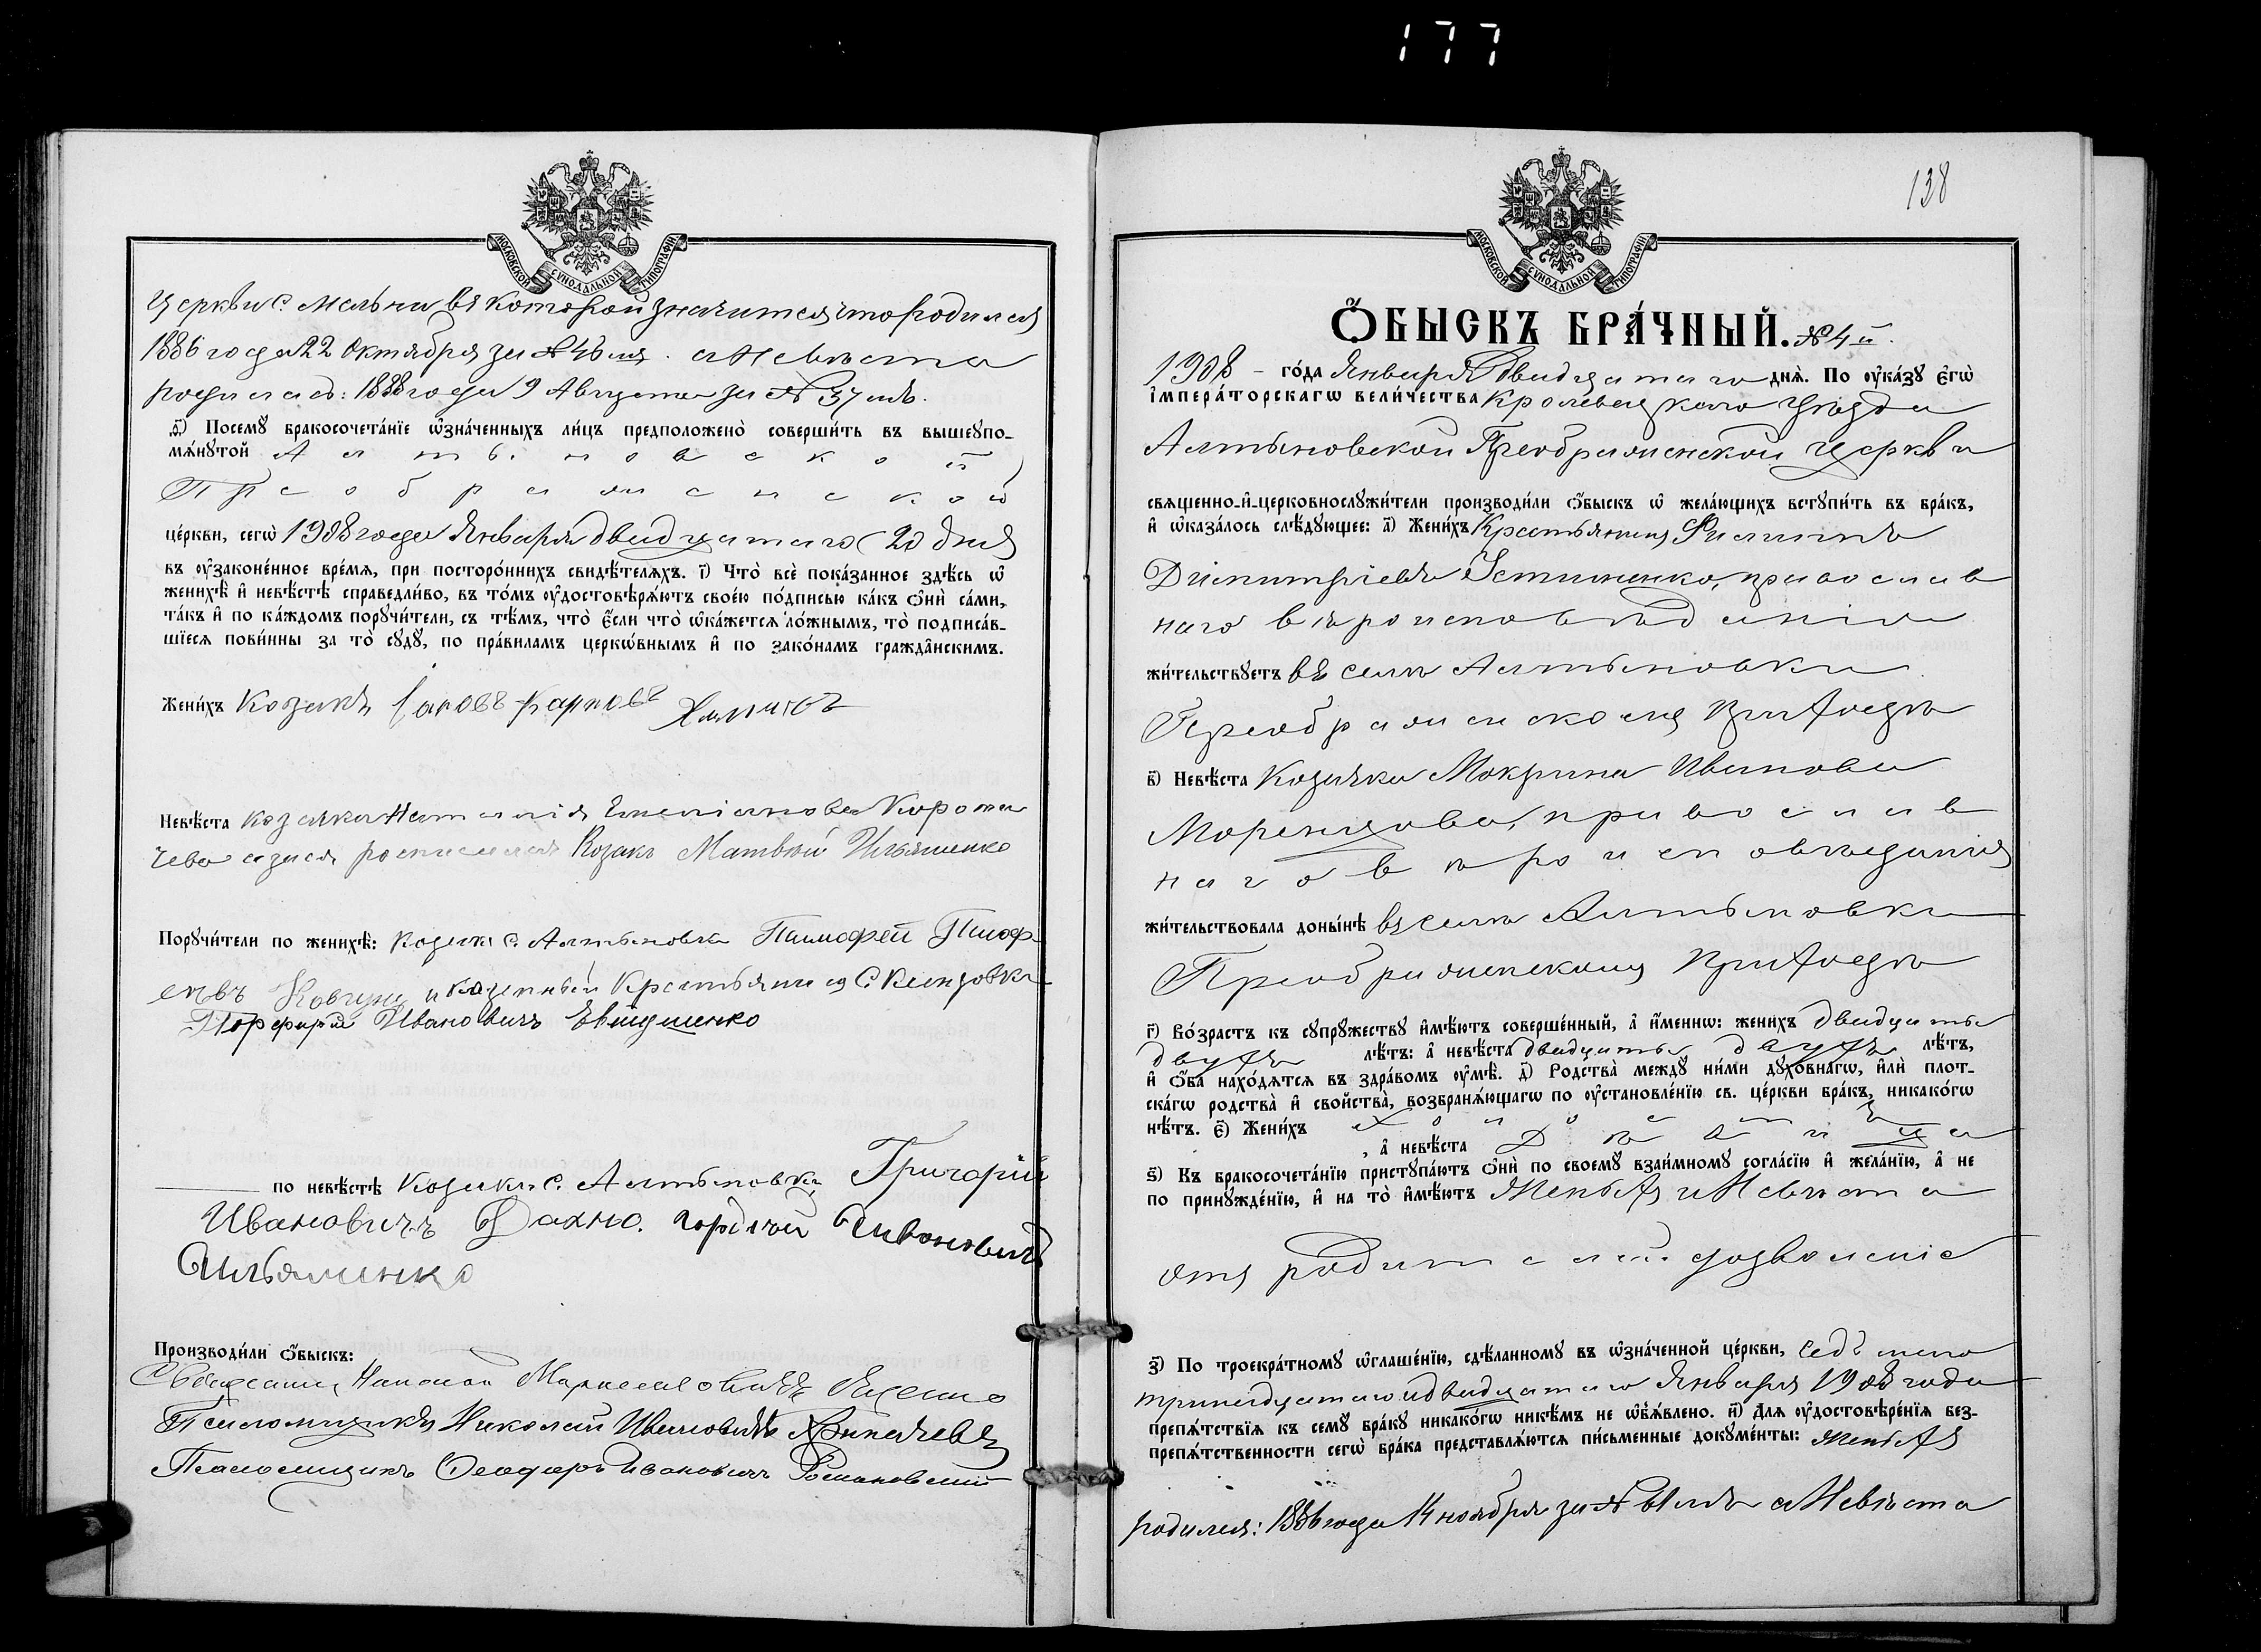 177
МОСКОВСКОЙ СѴНОДАЛЬНОЙ ТИПОГРАФІИ
церкви с. Мельни въ которой значится что родился
1886 года 22 Октября за № 46 мъ. а Невѣста
родилась: 1888 года 9 Августа за № 37 мъ.
ѳ҃) Посемꙋ бракосочета́нїе ѡ҆зна́ченныхъ ли́цъ предположено̀ соверши́ть въ вышеꙋпо-
мѧ́нꙋтой Алтыновской
Преображенской
це́ркви, сегѡ̀ 1908 года Января двадцатаго (20 дня)
въ ᲂу҆законе́нное вре́мѧ, при посторо́ннихъ свидѣ́телѧхъ. і҃) Что̀ всѐ пока́занное здѣ́сь ѡ҆
женихѣ̀ и҆ невѣ́стѣ справедли́во, въ то́мъ ᲂу҆достовѣрѧ́ютъ свое́ю по́дписью ка́къ ѻ҆нѝ са́ми,
та́къ и҆ по ка́ждомъ порꙋчи́тели, съ тѣ́мъ, что̀ є҆́сли что̀ ѡ҆ка́жетсѧ ло́жнымъ, то̀ подписа́в-
шїесѧ пови́нны за то̀ сꙋдꙋ̀, по пра́виламъ церко́внымъ и҆ по зако́намъ гражда̑нскимъ.
Жени́хъ Козакъ Карповъ
Невѣ́ста козачка Наталія Емеліанова Корота
чева а за ея росписался Козакъ Матвѣй Ильяшенко
Порꙋчи́тели по женихѣ̀: Козакъ с. Алтыновки Тимофей Тимоф
евъ Ковтунъ и казенный Крестьянинъ с.
Порфирій Ивановичъ Евтушенко
по невѣ́стѣ Козаки с. Алтыновки Григорій
Ивановичъ Дахно. Гордѣй
Ильяшенко
Производи́ли ѻ҆́быскъ:
Священникъ
Псаломщикъ Николай Ивановичъ
Псаломщикъ Феодоръ Ивановичъ Романовскій
138
МОСКОВСКОЙ СѴНОДАЛЬНОЙ ТИПОГРАФІИ
Ѻ҆́БЫСКЪ БРА́ЧНЫЙ. № 4 й.
1908 – го́да Января Двадцатаго днѧ̀. По ᲂу҆ка́зꙋ Є҆гѡ̀
І҆мпера́торскагѡ вели́чества Кролевецкаго Уѣзда
Алтыновской Преображенской Церкви
свѧщенно-и҆-церковнослꙋжи́тели производи́ли ѻ҆́быскъ ѡ҆ жела́ющихъ встꙋпи́ть въ бра́къ,
и҆ ѡ҆каза́лось слѣ́дꙋющее: а҃) Жени́хъ Крестьянинъ Филиппъ
Димитріевъ Устименко, православ
наго вѣроисповѣданія
жи́тельствꙋетъ въ селѣ Алтыновки
Преображенскомъ Приходѣ
в҃) Невѣ́ста Козачка Мокрина Иванова
Моренцова, православ
наго вѣроисповѣданія
жи́тельствовала доны́нѣ въ селѣ Алтыновки
Преображенскомъ Приходѣ
г҃) Во́зрастъ къ сꙋпрꙋ́жествꙋ и҆мѣ́ютъ соверше́нный, а҆ и҆́меннѡ: жени́хъ двадцать
двухъ лѣ́тъ: а҆ невѣ́ста двадцать двухъ лѣ́тъ,
и҆ ѻ҆́ба нахо́дѧтсѧ въ здра́вомъ ᲂу҆мѣ̀. д҃) Родства̀ междꙋ̀ ни́ми дꙋхо́внагѡ, и҆лѝ плот-
ска́гѡ родства̀ и҆ сво́йства̀, возбранѧ́ющагѡ по ᲂу҆становле́нїю св. це́ркви бра́къ, никако́гѡ
нѣ́тъ. є҃) Жени́хъ Холостъ
, а҆ невѣ́ста Дѣвица
ѕ҃) Къ бракосочета́нїю пристꙋпа́ютъ ѻ҆нѝ по своемꙋ̀ взаи́мномꙋ согла́сїю и҆ жела́нїю, а҆ не
по принꙋжде́нїю, и҆ на то̀ и҆мѣ́ютъ Женихъ и Невѣста
отъ родителей дозволеніе
з҃) По троекра́тномꙋ ѡ҆глаше́нїю, сдѣ́ланномꙋ въ ѡ҆зна́ченной це́ркви, седьмаго
тринадцатаго и двадцатаго Января 1908 года
препѧ́тствїѧ къ семꙋ̀ бра́кꙋ никако́гѡ никѣ́мъ не ѡ҆б̾ѧ́влено. и҃) Длѧ ᲂу҆достовѣре́нїѧ без-
препѧ́тственности сегѡ̀ бра́ка представлѧ́ютсѧ пи́сьменные докꙋме́нты: Женихъ
родился: 1886 года 14 ноября за № 61 мъ а Невѣста